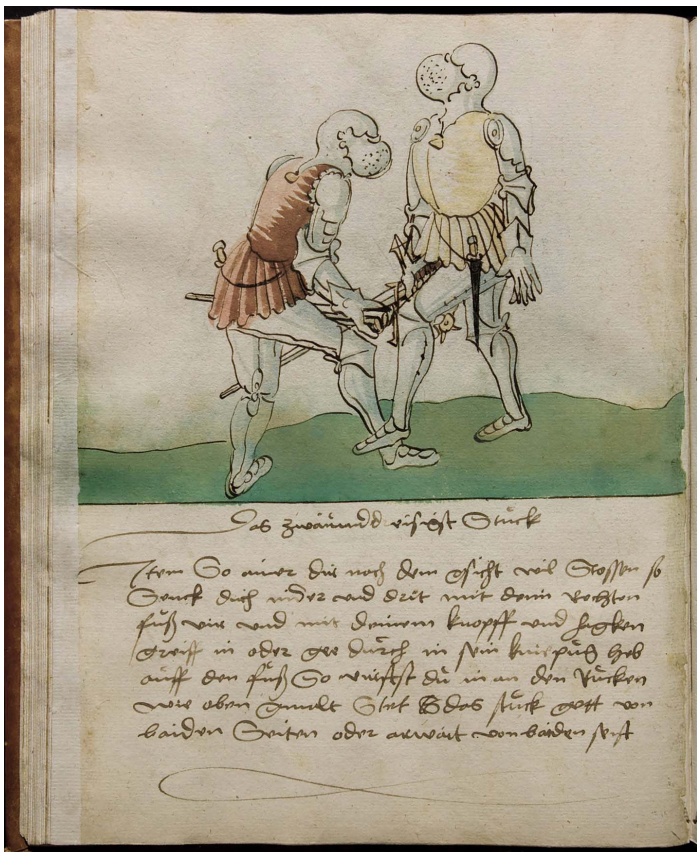 Das zwaiunddreisigist Stuck
Item So ainer dir nach dem gsicht wil Stossen so
Senck dich nider vnd drit mit dem rechten
fuß vir vnd mit deinem knopff vnd hacken
greiff in oder gee durch in sein kniepug heb
auff den fuß So wirfst du in an den Rucken
wie oben gmalt Stet das stuck gett von
baiden Seiten oder arwait von baiden seist